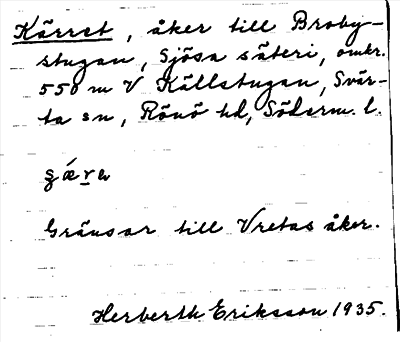 Kärret, åker till Broby-
stugan, Sjösa säteri, omkr.
550 m V Källstugan, Svär-
ta sn, Rönö hd, Söderm. l.
Gränsar till Vretas åker.
Herberth Eriksson 1935.